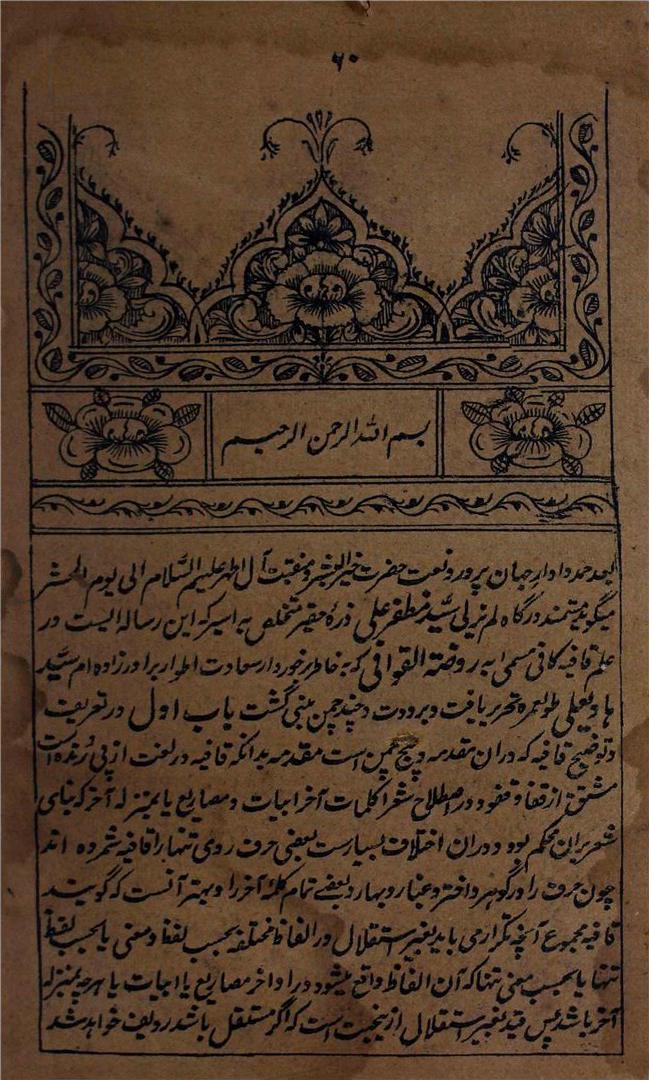 ۶۰
بسم الله الرحمن الرحیم
بعد حمد داوار جهان پرور و نعت حضرت خیر البشر و منقبت آل اطهر علیهم السّلام الی یوم المحشر
میگوید مستمند درگاه لم یزلی سیّد مظفر علی ذرهٔ حقیر متخلص به اسیر که این رساله ایست در
علم قافیه کافی مسمی به روضة القوافی که بخاطر برخوردار سعادت اطوار برادر زاده ام سیّد
طولعمره تحریر یافت و بر و چند چمن مبنی گشت باب اول در تعریف
و توضیح قافیه که دران مقدمه و پنج چمن است مقدمه بدانکه قافیه در لغت از پی رونده است
مشتق از قفا و قفو و در اصطلاح شعرا کلمات آخر ابیات و مصاریع یا بمنزله آخر که بنای
شعر بران محکم بود و دران اختلاف بسیارست بعضی حرف روی تنها را قافیه شمرده اند
چون حرف را در گوهر و اختر و غبار و بهار و بعضے تمام کلمهٔ آخر را و بهتر آنست که گویند
قافیه مجموع آنچه تکرار می یابد بغیر استقلال در الفاظ مختلفه بحسب لفظ و معنی یا بحسب لفظ
تنها یا بحسب معنی تنها که آن الفاظ واقع میشود در اواخر مصاریع یا ابیات یا هر چه بمنزله
آخر باشد پس قید بغیر استقلال ازینجهت است که اگر مستقل باشد ردیف خواهد شد